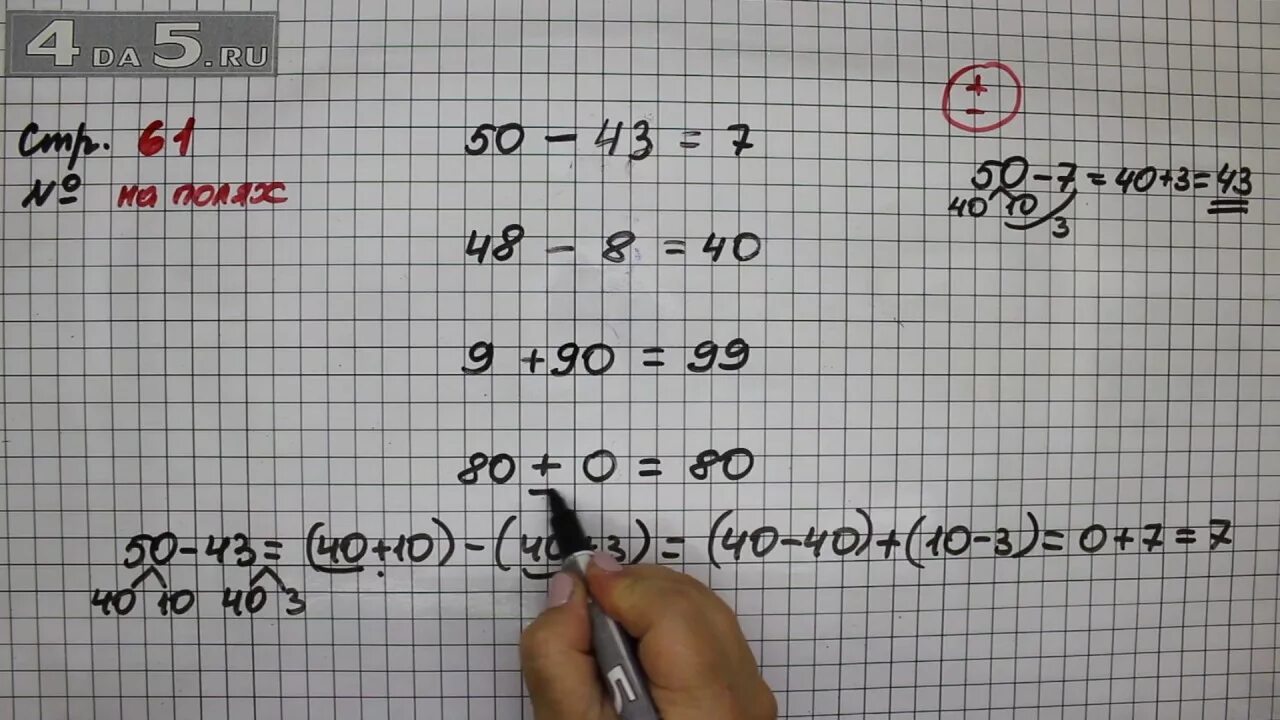 4DA5.RU
Стр. 61
№ на полях
50 - 43 = 7
48 - 8 = 40
9 + 90 = 99
80 + 0 = 80
+
-
50 - 7 = 40 + 3 = 43
40 10 3
50 - 43 = (40 + 10) - (40 + 3) = (40 - 40) + (10 - 3) = 0 + 7 = 7
40 10 40 3